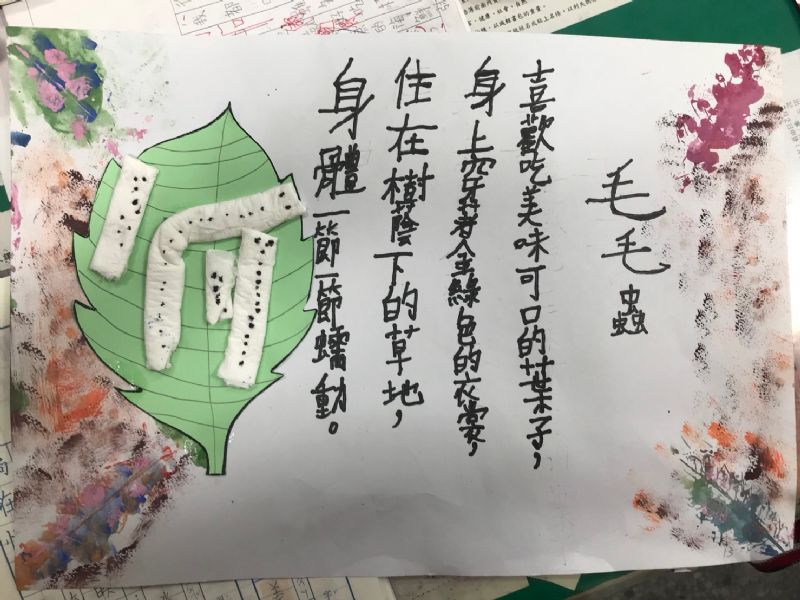 毛毛蟲
喜歡吃美味可口的葉子，
身上穿著全綠色的衣裳，
住在樹蔭下的草地，
身體一節一節蠕動。